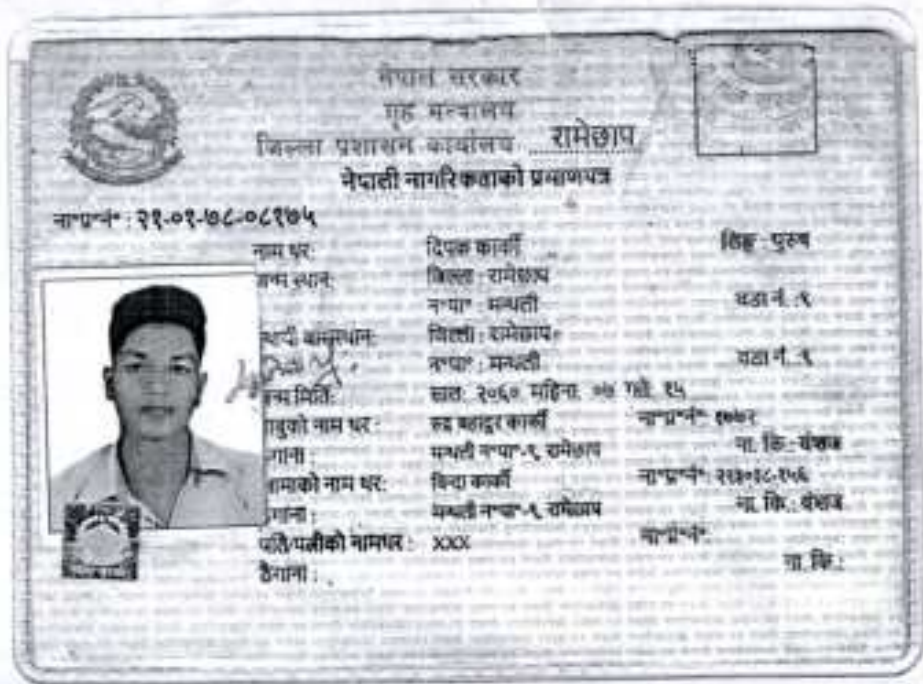 नेपाल सरकार
गृह मन्त्रालय
जिल्ला प्रशासन कार्यालय रामेछाप
नेपाली नागरिकताको प्रमाणपत्र
ना॰प्र॰नं॰ : २१-०१-७८-०८१७५
नाम थर: दिपक कार्की लिङ्ग : पुरुष
जन्म स्थान: जिल्ला : रामेछाप
न॰पा॰ : मन्थली वडा नं. :
स्थायी बासस्थान: जिल्ला : रामेछाप
न॰पा॰ : मन्थली वडा नं. :
जन्म मिति: साल: २०६० महिना: ०७ गते: १५
बाबुको नाम थर : रुद्र बहादुर कार्की ना॰प्र॰नं॰
ठेगाना : मन्थली न॰पा॰ रामेछाप ना. कि.: वंशज
आमाको नाम थर: कार्की ना॰प्र॰नं॰
ठेगाना : मन्थली न॰पा॰ रामेछाप ना. कि.: वंशज
पति/पत्नीको नामथर : XXX ना॰प्र॰नं॰
ठेगाना : ना. कि.: